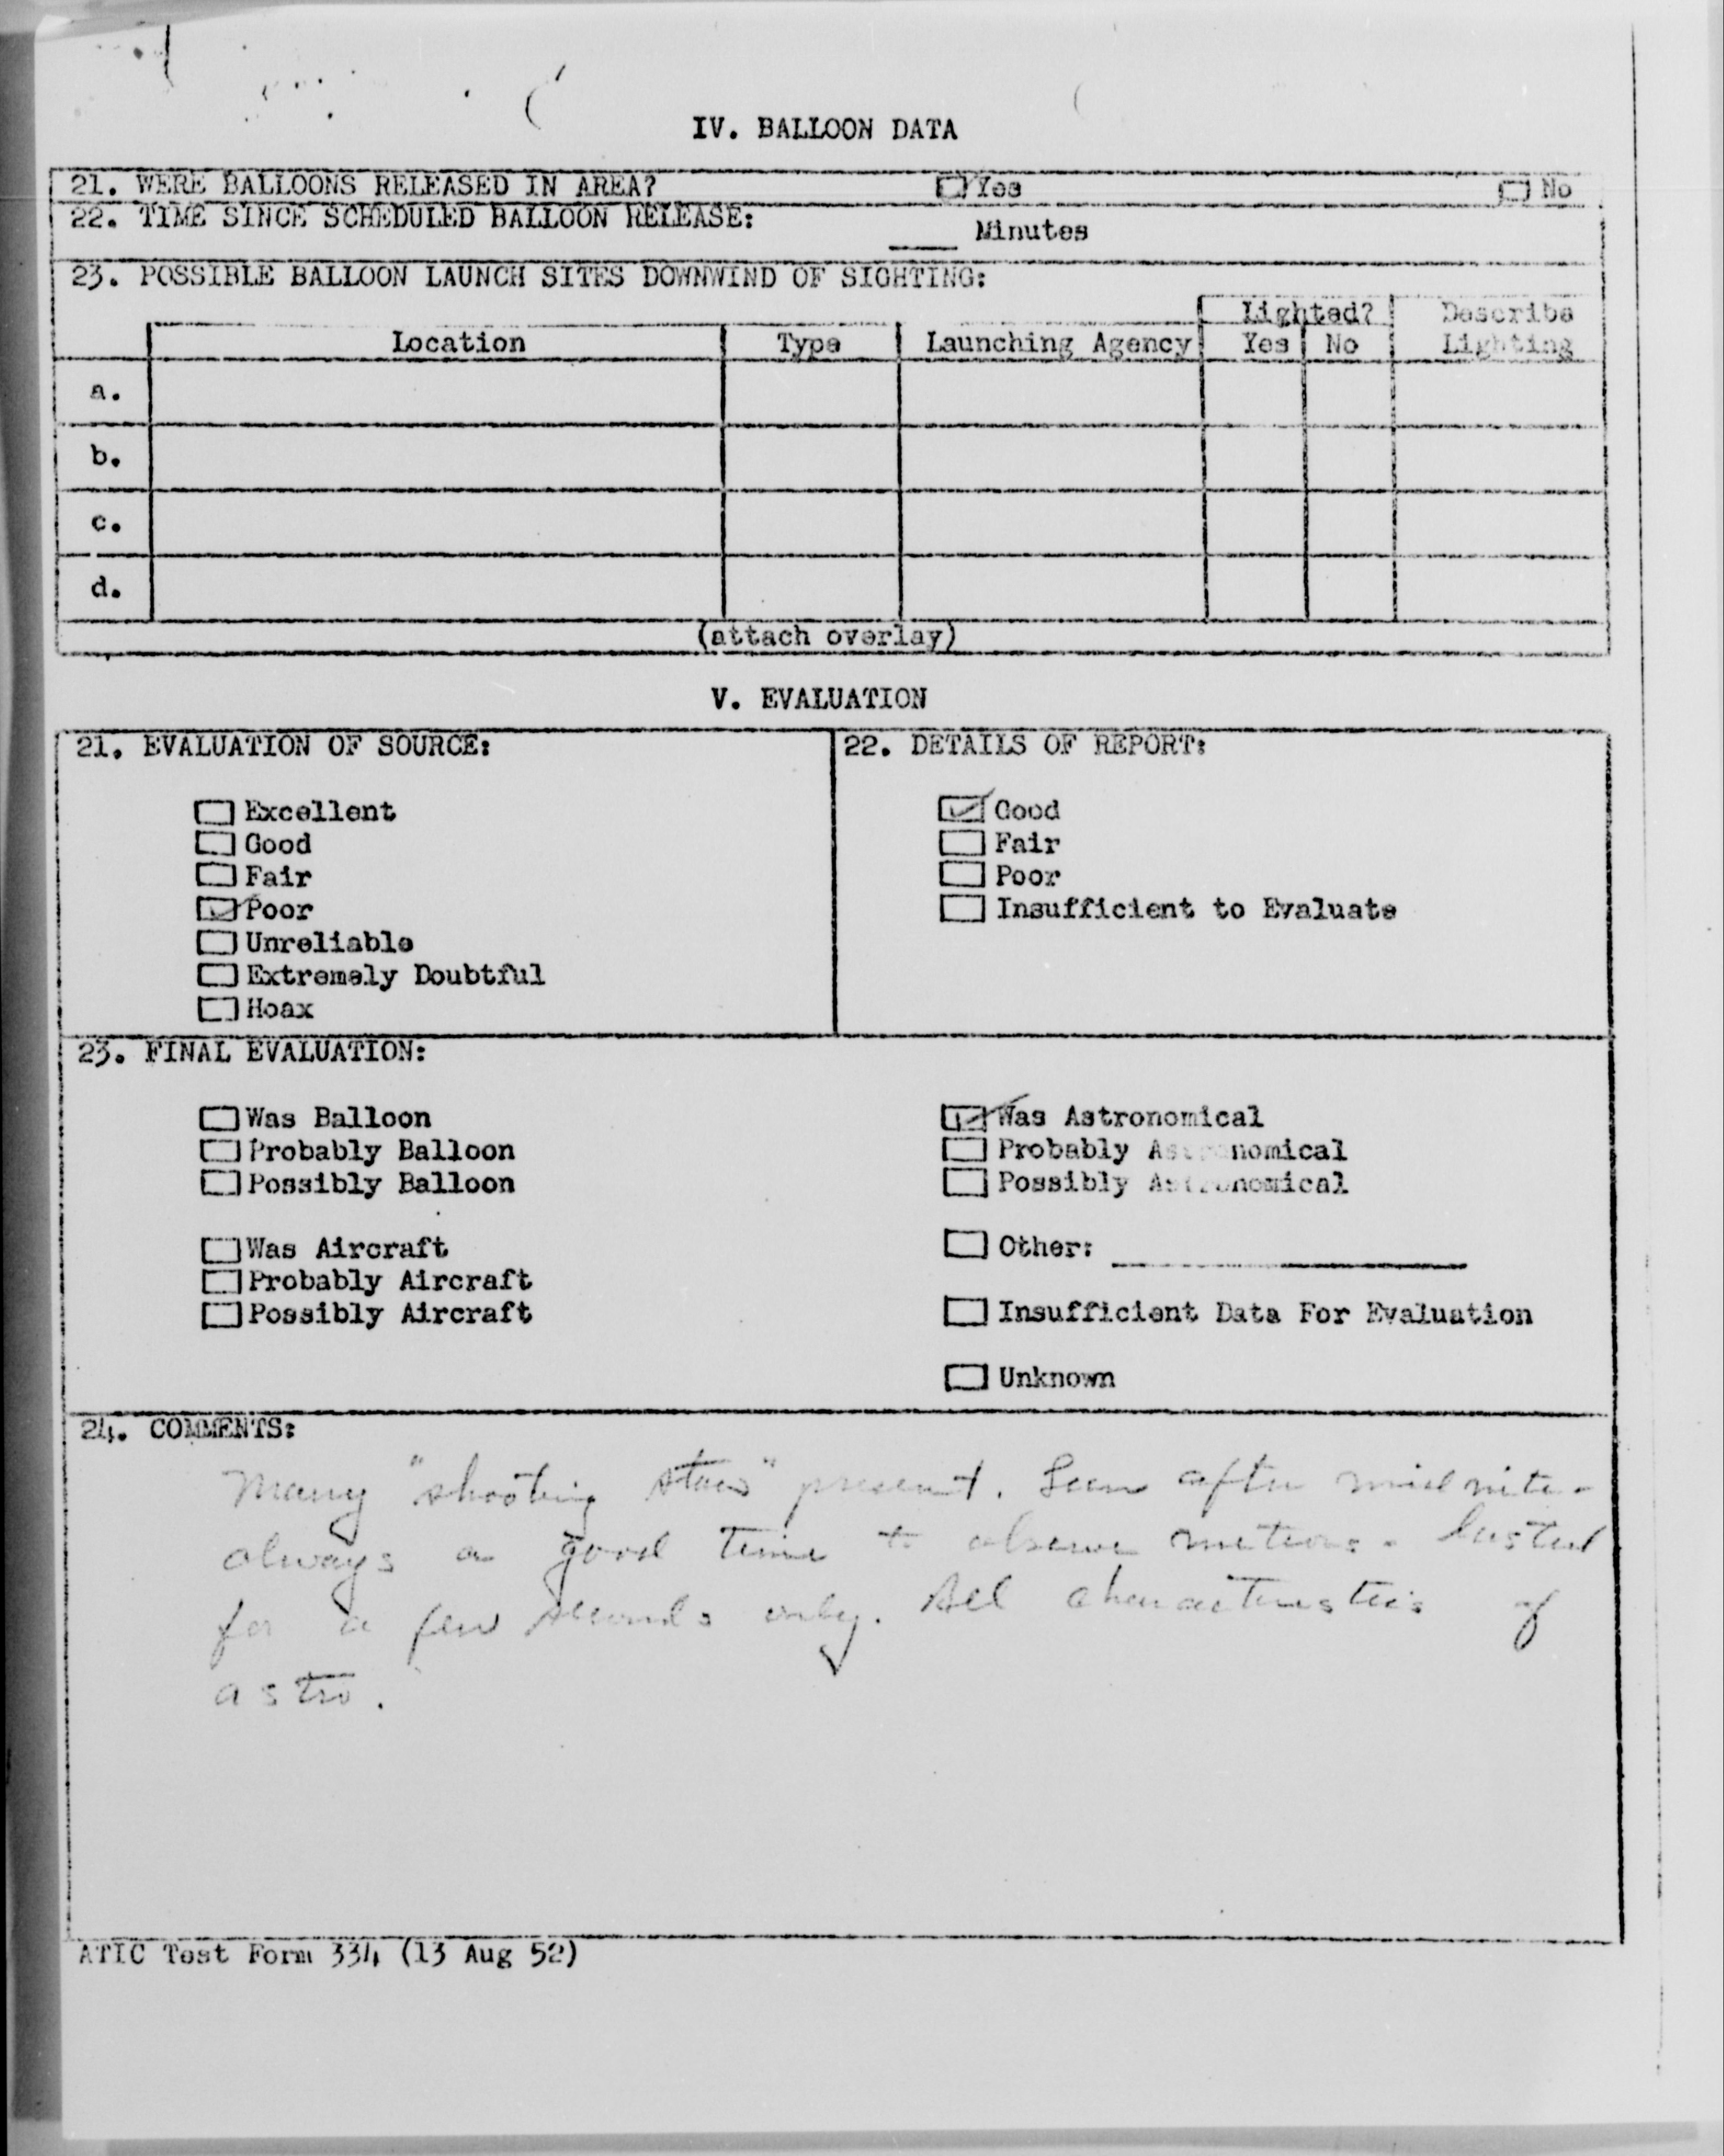 IV. BALLOON DATA
21. WERE BALLOONS RELEASED IN AREA? Yes No
22. TIME SINCE SCHEDULED BALLOON RELEASE: ____ Minutes
23. POSSIBLE BALLOON LAUNCH SITES DOWNWIND OF SIGHTING:
Lighted? Describe
Location Type Launching Agency Yes No Lighting
a.
b.
c.
d.
(attach overlay)
V. EVALUATION
21. EVALUATION OF SOURCE:
Excellent
Good
Fair
Poor
Unreliable
Extremely Doubtful
Hoax
22. DETAILS OF REPORT:
Good
Fair
Poor
Insufficient to Evaluate
23. FINAL EVALUATION:
Was Balloon
Probably Balloon
Possibly Balloon
Was Aircraft
Probably Aircraft
Possibly Aircraft
Was Astronomical
Probably Astronomical
Possibly Astronomical
Other: ____
Insufficient Data For Evaluation
Unknown
24. COMMENTS:
Many "shooting stars" present. Seen after midnite -
always a good time to observe meteors. Lasted
for a few seconds only. All characteristics of
astro.
ATIC Test Form 334 (13 Aug 52)